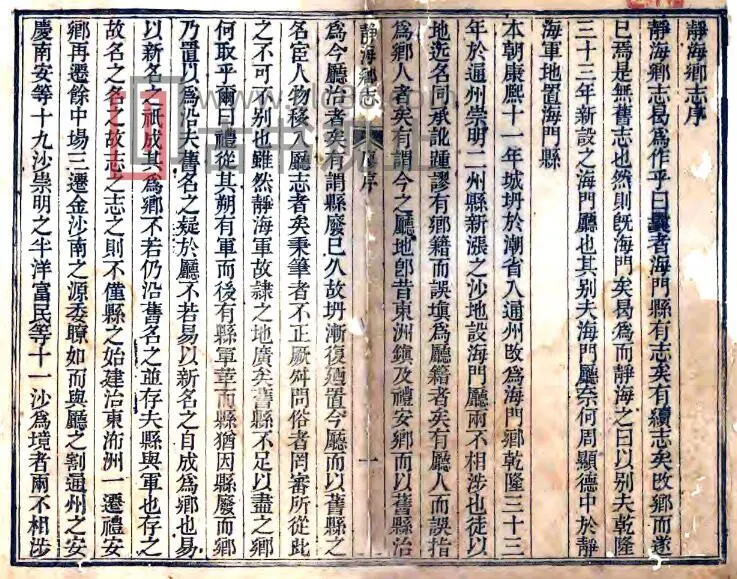 靜海鄉志序
靜海鄉志曷爲作乎曰曩者海門縣有志矣有續志矣改鄉而遂
已焉是無舊志也然則旣海門矣曷爲而靜海之曰以别夫乾隆
三十三年新設之海門廳也其别夫海門廳奈何周顯德中於靜
海軍地置海門縣
本朝康熙十一年城坍於潮省入通州改爲海門鄉乾隆三十三
年於通州崇明二州縣新漲之沙地設海門廳兩不相涉也徒以
地迩名同承訛踵謬有鄉籍而誤塡爲廳籍者矣有廳人而誤指
爲鄉人者矣有謂今之廳地卽昔東洲鎭及禮安鄉而以舊縣治
靜海鄉志
原序
一
爲今廳治者矣有謂縣廢已久故坍漸復廼置今廳而以舊縣之
名宦人物移入廳志者矣秉筆者不正厥舛問俗者罔審所從此
之不可不别也雖然靜海軍故隷之地廣矣舊縣不足以盡之鄉
何取乎爾曰禮從其朔有軍而後有縣軍革而縣猶因縣廢而鄉
乃置以爲沿夫舊名之疑於廳不若易以新名之自成爲鄉也易
以新名之祇成其爲鄉不若仍沿舊名之並存夫縣與軍也存之
故名之名之故志之志之則不僅縣之始建治東洲一遷禮安
鄉再遷餘中場三遷金沙南之源委瞭如而與廳之割通州之安
慶南安等十九沙崇明之半洋富民等十一沙爲境者兩不相涉